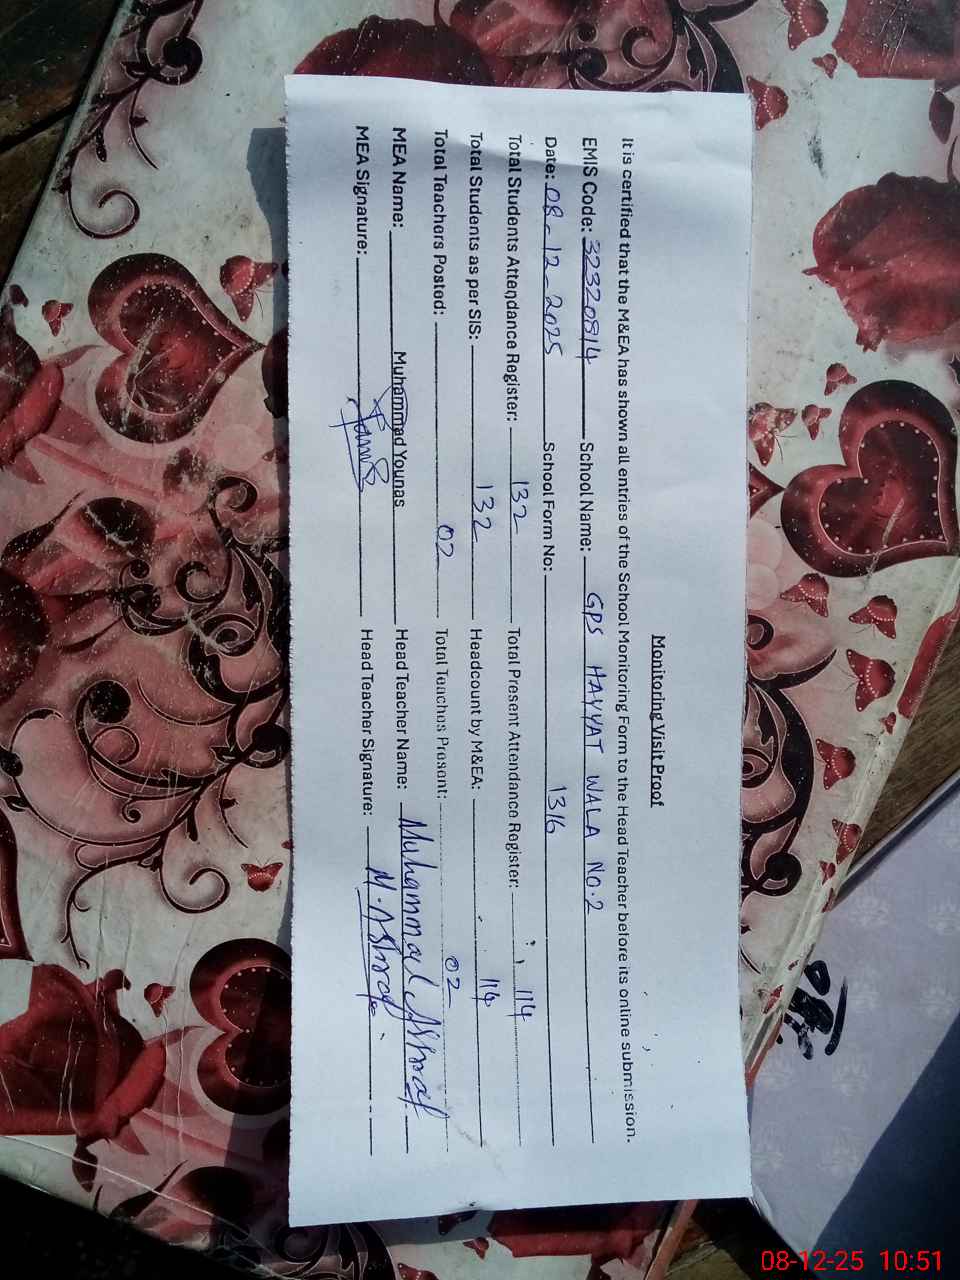 Monitoring Visit Proof
It is certified that the M&EA has shown all entries of the School Monitoring Form to the Head Teacher before its online submission.
EMIS Code: 32320814 School Name: GPS HAYYAT WALA NO.2
Date: 08-12-2025 School Form No: 1316
Total Students Attendance Register: 132 Total Present Attendance Register: 114
Total Students as per SIS: 132 Headcount by M&EA: 114
Total Teachers Posted: 02 Total Teaches Present: 02
MEA Name: Muhammad Younas Head Teacher Name: Muhammad Ashraf
MEA Signature: Head Teacher Signature: M. Ashraf
08-12-25 10:51